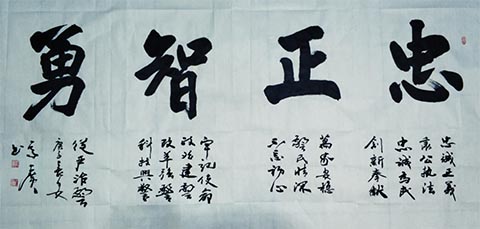 忠
正
智
勇
忠诚正義
秉公执法
忠诚為民
创新奉献
萬家安穩
警民情深
不忘初心
牢记使命
政治建警
改革强警
科技興警
從严治警
庚子
书